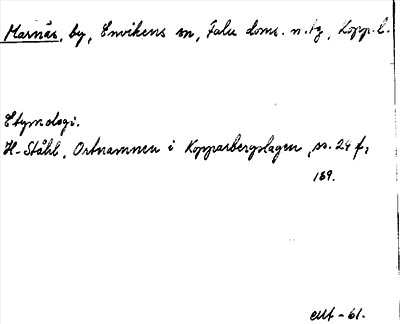 Marnäs, by, Envikens sn, Falu doms. n. tg, Kopp. l.
Etymologi.
H. Ståhl, Ortnamnen i Kopparbergslagen, ss. 24 f,
169.
-61.